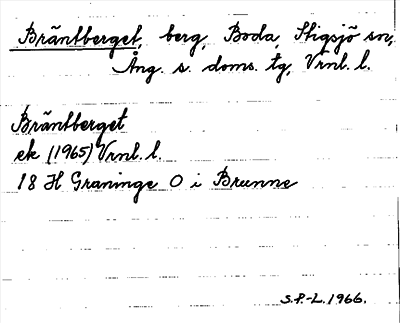 Bräntberget, berg, Boda, Stigsjö sn,
Ång. s. doms. tg, Vrnl. l.
Bräntberget
ek (1965) Vrnl. l.
18 H Graninge O i Brunne
S.P.-L. 1966.